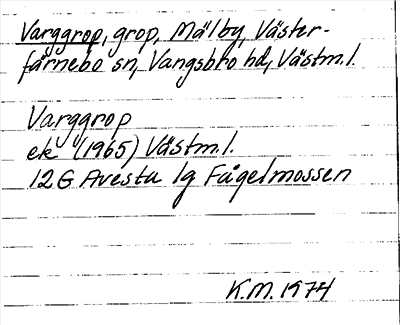 Varggrop, grop, Mälby, Väster-
färnebo sn, Vangsbro hd, Västm.l.
Varggrop
ek (1965) Västm.l.
12G Avesta 1g Fågelmossen
K.M. 1974